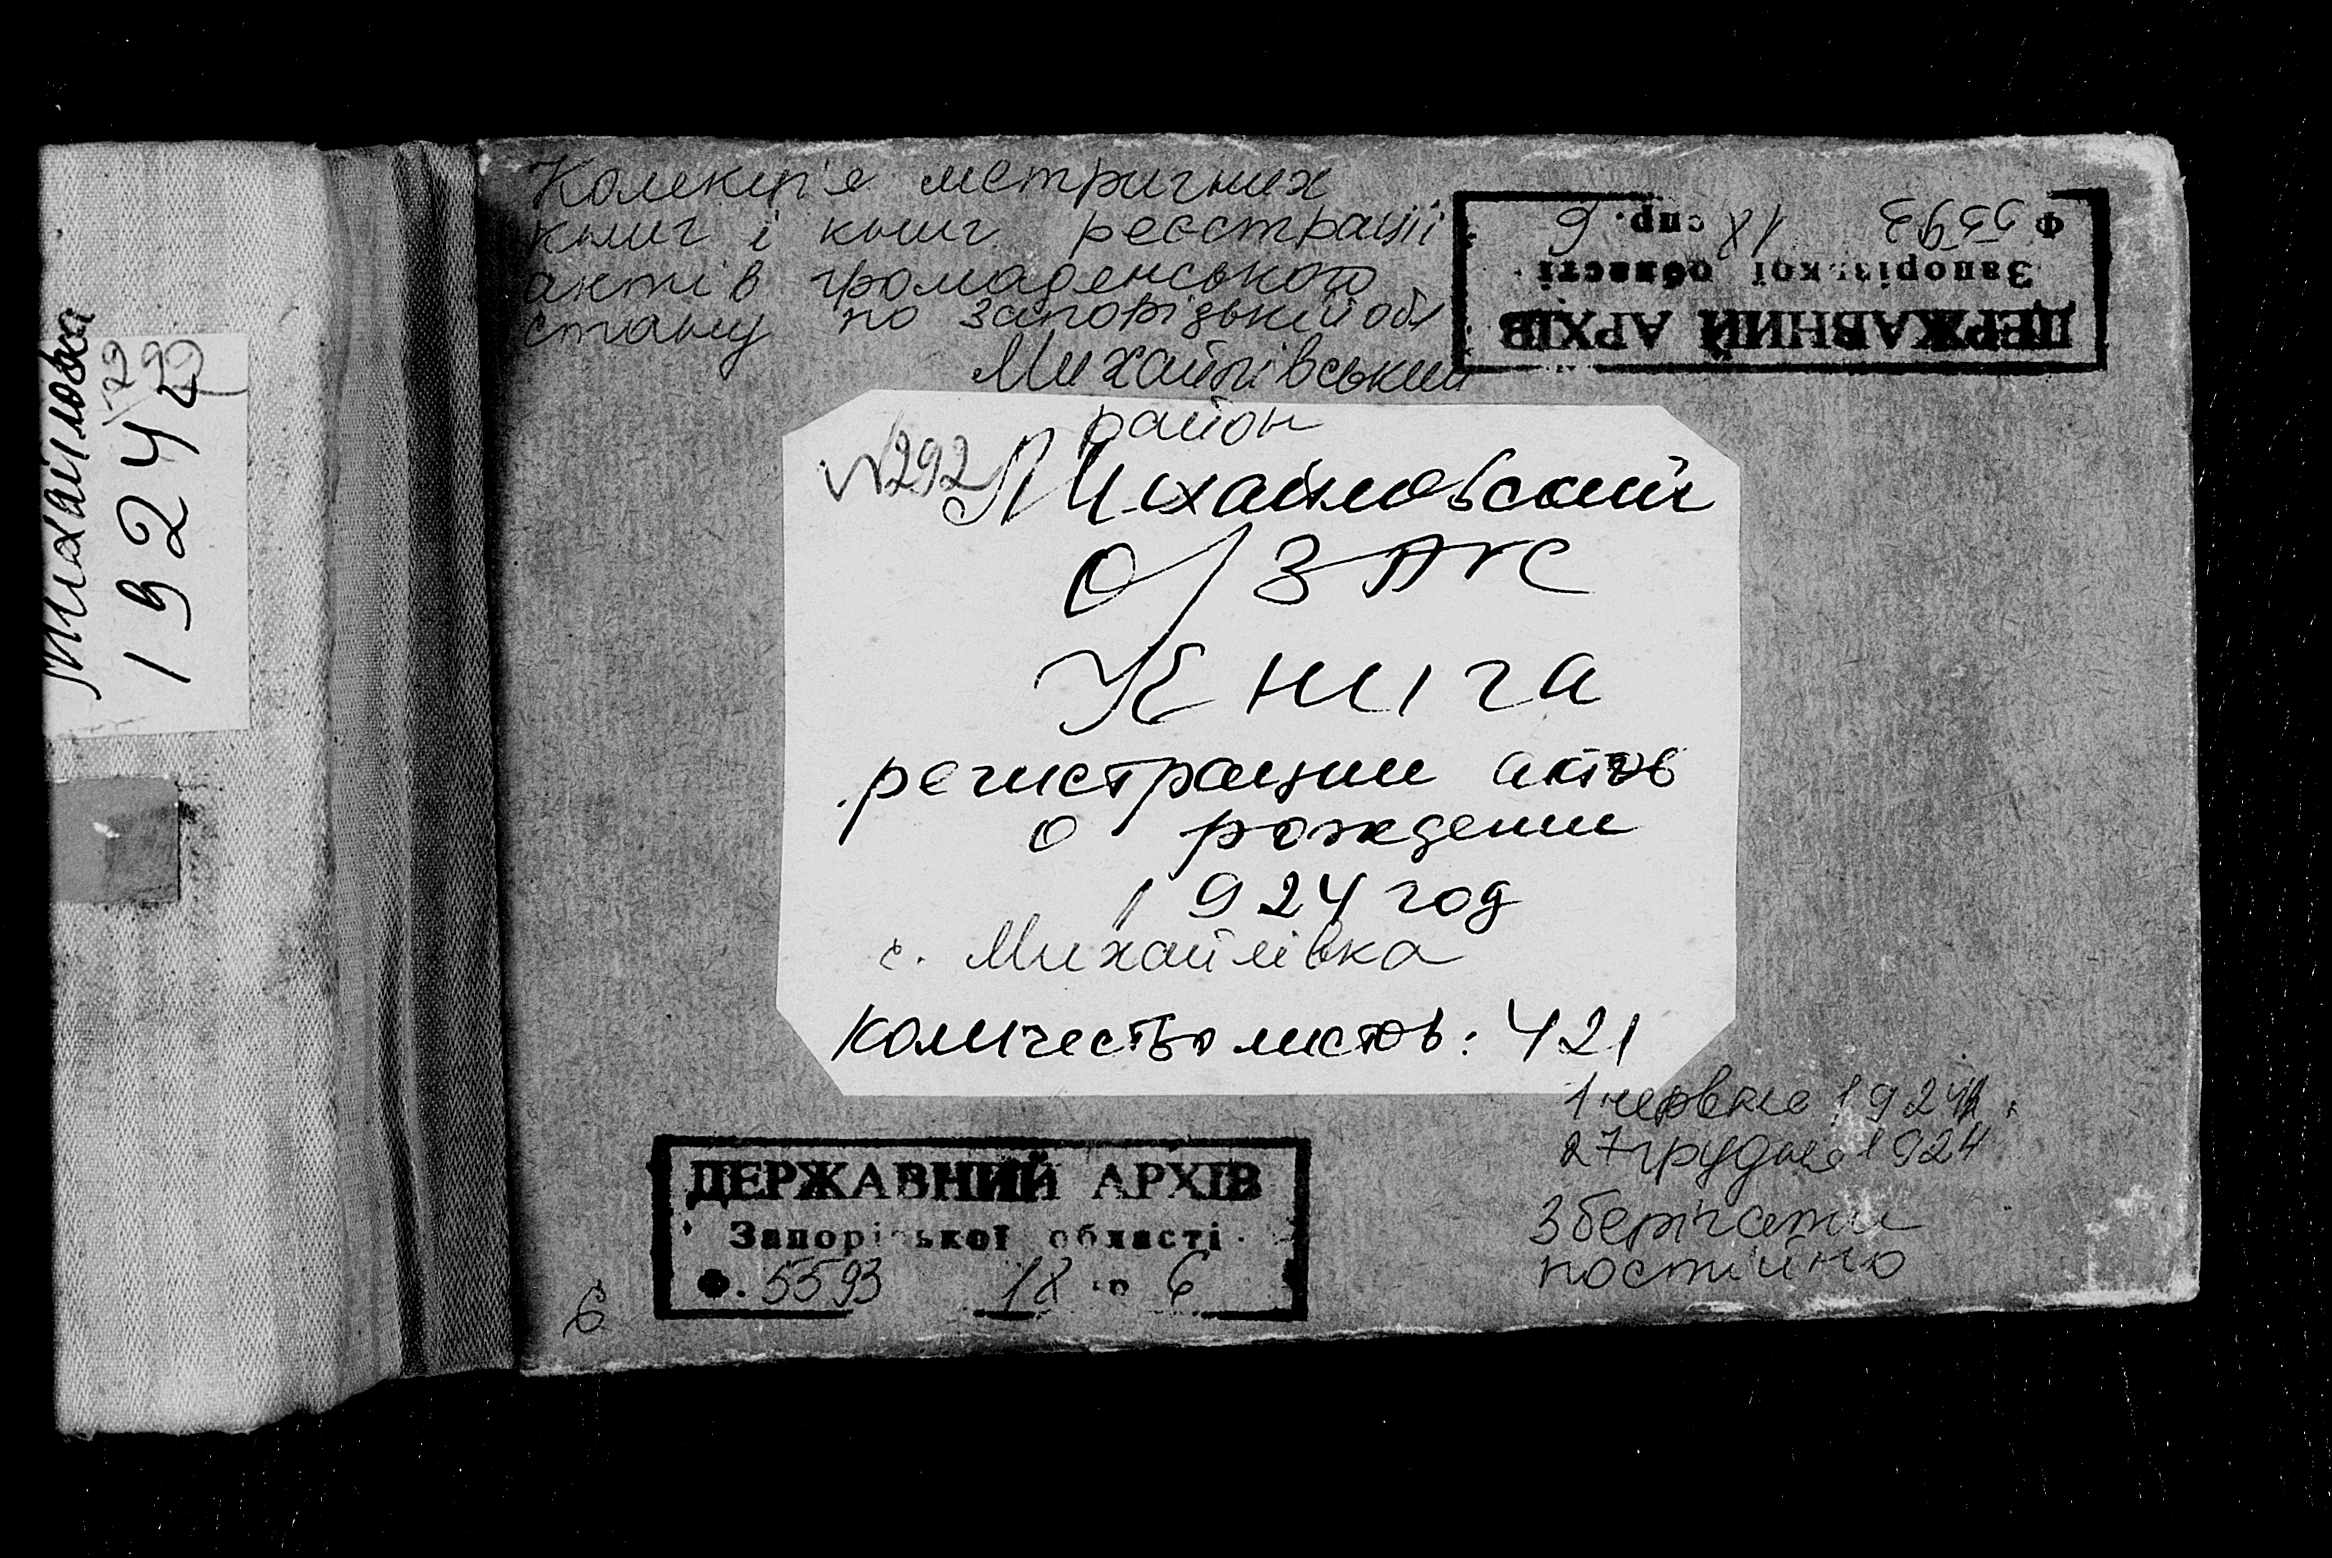 Колекція метричних
книг і книг реєстрації
актів громадянського
стану по Запорізькій обл
Михайлівський
район
ДЕРЖАВНИЙ АРХІВ
Запорізької області
Ф 5593 18 спр. 6
Михайловка
1924
№292 Михайловский
о/ЗАГС
Книга
регистрации актов
о рождении
1924 год
с. Михайлівка
количество листов: 421
1 червня 1924
27 грудня 1924
Зберігати
постійно
ДЕРЖАВНИЙ АРХІВ
Запорізької області
Ф. 5593 18 6
6